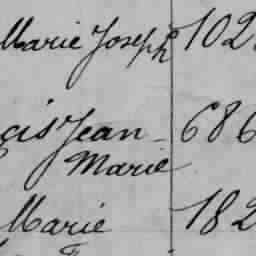 Marie Joseph 102
çis Jean 686
Marie
Marie 182